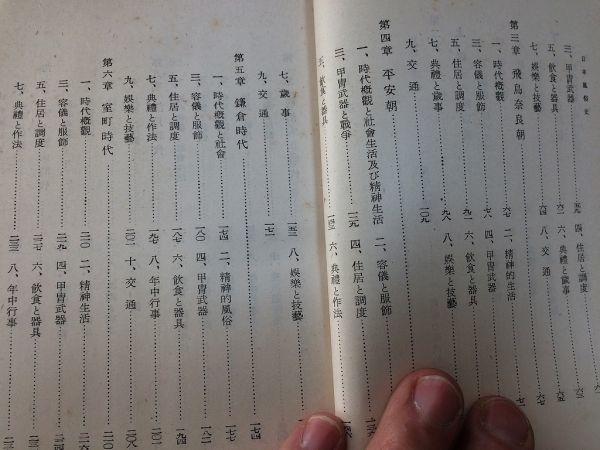 日本風俗史
三、甲冑武器……五九　四、住居と調度……六
五、飲食と器具……六二　六、典禮と歳事……六五
七、娛樂と技藝……六四　八、交通……六七
第三章　飛鳥奈良朝
一、時代概觀……六七　二、精神的生活……七
三、容儀と服飾……七六　四、甲冑武器
五、住居と調度……八四　六、飲食と器具
七、典禮と歳事……九一　八、娛樂と技藝
九、交通……一〇九
第四章　平安朝
一、時代概觀と社會生活及び精神生活　二、容儀と服飾
三、甲冑武器と戰爭……一三九　四、住居と調度
五、飲食と器具……一四五　六、典禮と作法
七、歳事……一五三　八、娛樂と技藝
九、交通……一七一
第五章　鎌倉時代
一、時代概觀と社會……一七四　二、精神的風俗……一七七
三、容儀と服飾……一八〇　四、甲冑武器……一八二
五、住居と調度……一八七　六、飲食と器具……一九四
七、典禮と作法……一九七　八、年中行事……二〇一
九、娛樂と技藝……二〇二　十、交通
第六章　室町時代
一、時代概觀……二一〇　二、精神生活
三、容儀と服飾……二一九　四、甲冑武器
五、住居と調度……二三七　六、飲食と器具
七、典禮と作法……二三三　八、年中行事